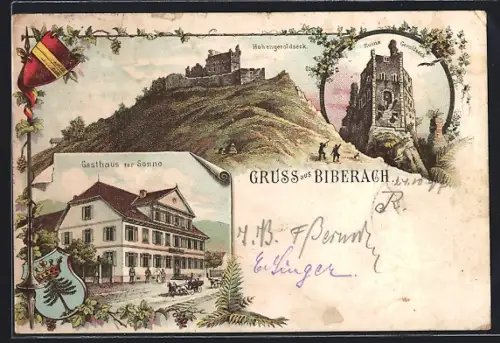 Hohengeroldseck.
Ruine Geroldseck
Gasthaus zur Sonne
GRUSS aus BIBERACH
E. Singer.